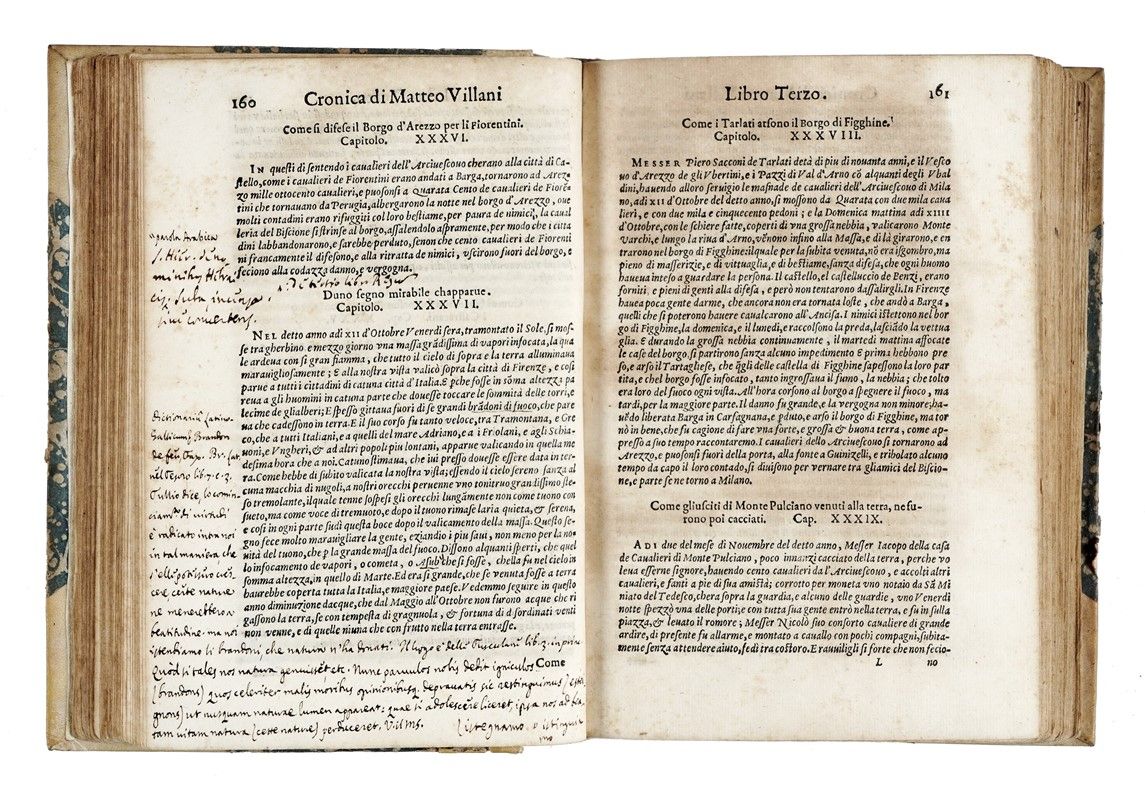 160 Cronica di Matteo Villani
Come si difese il Borgo d'Arezzo per li Fiorentini.
Capitolo. XXXVI.
IN questi dì sentendo i caualieri dell'Arciuescouo cherano alla città di Ca-
stello, come i caualieri de Fiorentini erano andati a Barga, tornarono ad Arez-
zo mille ottocento caualieri, e puosonsi a Quarata Cento de caualieri de Fioren-
tini che tornauano da Perugia, albergarono la notte nel borgo d'Arezzo, oue
molti contadini erano rifuggiti col loro bestiame, per paura de nimici, la caual
leria del Biscione si strinse al borgo, assalendolo aspramente, per modo che i citta
dini labbandonarono, e sarebbe perduto, senon che cento caualieri de Fiorenti
ni francamente il difesono, e alla ritratta de nimici, vscirono fuori del borgo, e
feciono alla codazza danno, e vergogna.
Duno segno mirabile chapparue.
Capitolo. XXXVII.
NEL detto anno adì XII d'Ottobre Venerdì sera, tramontato il Sole, si mos-
se tra gherbino e mezzo giorno vna massa grādissima di vapori infocata, la qua
le ardeua con si gran fiamma, che tutto il cielo di sopra e la terra alluminaua
marauigliosamente; & alla nostra vista valicò sopra la città di Firenze, e così
parue a tutti i cittadini di catuna città d'Italia. E pche fosse in sōma altezza pa
reua a gli huomini in catuna parte che douesse toccare le sommità delle torri, e
lecime de glialberi; E spesso gittaua fuori di se grandi brādoni di fuoco, che pare
ua che cadessono in terra. E il suo corso fu tanto veloce, tra Tramontana, e Gre
co, che a tutti Italiani, e a quelli del mare Adriano, e a i Friolani, e agli Schia-
uoni, e Vngheri, & ad altri popoli piu lontani, apparue valicando in quella me
desima hora che a noi. Catuno stimaua, che iui presso douesse essere data in ter-
ra. Come hebbe di subito valicata la nostra vista; essendo il cielo sereno sanza al
cuna macchia di nugoli, a nostri orecchi peruenne vno tonitruo grandissimo ste-
so tremolante, ilquale tenne sospesi gli orecchi lungāmente non come tuono con
sueto, ma come voce di tremuoto, e dopo il tuono rimase laria quieta, & serena,
e così in ogni parte fu dì questa boce dopo il valicamento della massa. Questo se-
gno fece molto marauigliare la gente, eziandio i piu saui, non meno per la no-
uità del tuono, che p la grande massa del fuoco. Dissono alquanti sperti, che quel
lo infocamento de vapori, o cometa, o Asub che si fosse, chella fu nel cielo in
somma altezza, in quello di Marte. Ed era sì grande, che se venuta fosse a terra
haurebbe coperta tutta la Italia, e maggiore paese. Vedemmo seguire in questo
anno diminuzione dacque, che dal Maggio all'Ottobre non furono acque che ri
gassono la terra, se con tempesta di gragnuola, & fortuna di disordinati venti
non venne, e di quelle niuna che con frutto nella terra entrasse.
Come
parola Arabica
Dictionariũ Latino
Gallicum: Brandon
de feu, Fax.
nel Tesoro lib. 7. c. 3.
Tullio dice, lo comin-
ciamẽto di virtudi
è radicato intra noi
in tal maniera che
celle ceste nature
ne menerebbero a
beatitudine. ma noi
istendiamo li brandoni, che natura n'ha donati. Il luogo è delle Tusculane lib. 3. in prin.
Quod si tales nos natura genuisset etc. Nunc parvulos nobis dedit igniculos
(brandons) quos celeriter malis moribus opinionibusq. depravatis sic restinguimus
ut nusquam naturae lumen appareat: quae si adolescere liceret, ipsa nos ad bea-
tam vitam natura (ceste nature) perduceret.
Libro Terzo. 161
Come i Tarlati arsono il Borgo di Figghine.
Capitolo. XXXVIII.
MESSER Piero Sacconi de Tarlati detà di piu di nouanta anni, e il Vesco
uo d'Arezzo de gli Vbertini, e i Pazzi di Val d'Arno cō alquanti degli Vbal
dini, hauendo alloro seruigio le masnade de caualieri dell'Arciuescouo di Mila
no, adì XII d'Ottobre del detto anno, si mossono da Quarata con due mila caua
lieri, e con due mila e cinquecento pedoni; e la Domenica mattina adì XIIII
d'Ottobre, con le schiere fatte, coperti di vna grossa nebbia, valicarono Monte
varchi, e lungo la riua d'Arno, vēnono infino alla Massa, e di là girarono, e en
trarono nel borgo di Figghine: ilquale per la subita venuta, nō era isgombro, ma
pieno di masserizie, e di vittuaglia, e di bestiame, sanza difesa, che ogni buono
haueua inteso a guardare la persona. Il castello, el castelluccio de Benzi, erano
forniti e pieni di genti alla difesa, e però non tentarono dassalirgli. In Firenze
hauea poca gente darme, che ancora non era tornata loste, che andò a Barga,
quelli che si poterono hauere caualcarono all'Ancisa. I nimici istettono nel bor
go di Figghine, la domenica, e il lunedì, e raccolsono la preda, lasciādo la vettua
glia. E durando la grossa nebbia continuamente, il martedì mattina affocate
le case del borgo, si partirono sanza alcuno impedimento E prima hebbono pre
so, e arso il Tartagliese, che q̄gli delle castella di Figghine sapessono la loro par
tita, e chel borgo fosse infocato, tanto ingrossaua il fumo, la nebbia; che tolto
era loro del fuoco ogni vista. All'hora corsono al borgo a spegnere il fuoco, ma
tardi, per la maggiore parte. Il danno fu grande, e la vergogna non minore; ha-
uēdo liberata Barga in Carfagnana, e pduto, e arso il borgo di Figghine, ma tor
nò in bene, che fu cagione di fare vna forte, e grossa & buona terra, come ap-
presso a suo tempo raccontaremo. I caualieri dello Arciuescouo si tornarono ad
Arezzo, e puosonsi fuori della porta, alla fonte a Guinizelli, e tribolato alcuno
tempo da capo il loro contado, si diuisono per vernare tra gliamici del Biscio-
ne, e parte se ne torno a Milano.
Come gliusciti di Monte Pulciano venuti alla terra, ne fu-
rono poi cacciati. Cap. XXXIX.
ADI due del mese di Nouembre del detto anno, Messer Iacopo della casa
de Caualieri di Monte Pulciano, poco innanzi cacciato della terra, perche vo
leua esserne signore, hauendo cento caualieri da l'Arciuescouo, e accolti altri
caualieri, e fanti a pie di sua amistà; corrotto per moneta vno notaio da Sā Mi
niato del Tedesco, chera sopra la guardia, e alcuno delle guardie, vno Venerdì
notte spezzò vna delle porti; e con tutta sua gente entrò nella terra, e fu in sulla
piazza, & leuato il romore; Messer Nicolò suo consorto caualiere di grande
ardire, di presente fu allarme, e montato a cauallo con pochi compagni, subita-
mente senza attendere aiuto, fedì tra costoro. E rauuiligli sì forte che non fecio-
L no